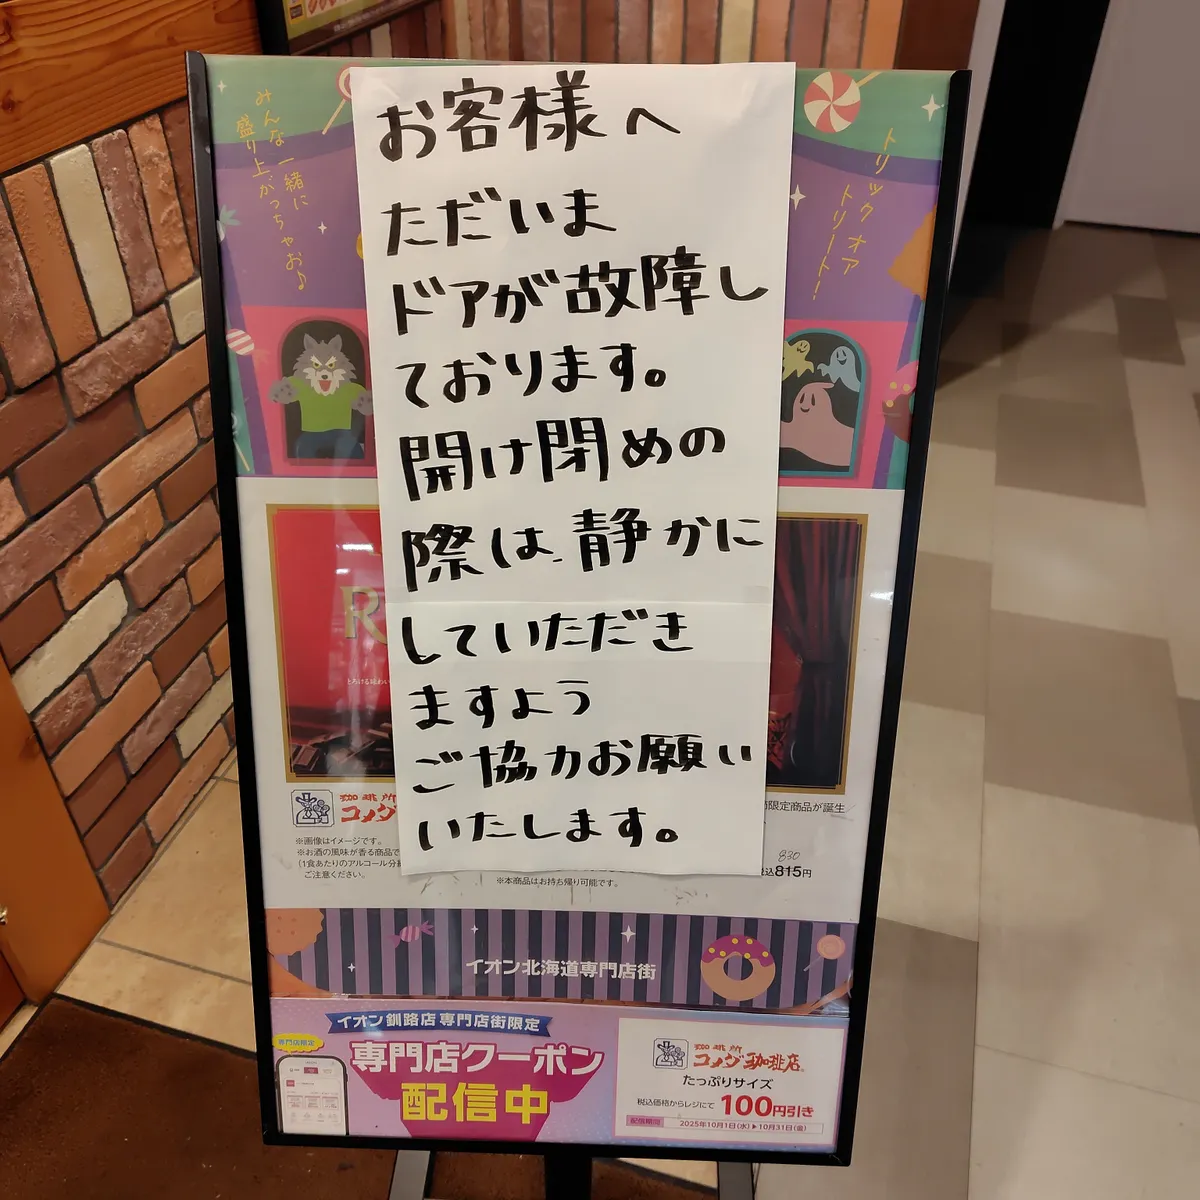 みんな一緒に
盛り上がっちゃお♪
トリック オア
トリート!
お客様へ
ただいま
ドアが故障し
ております。
開け閉めの
際は、静かに
していただき
ますよう
ご協力お願い
いたします。
R
とろける味わい
珈琲所
コメダ
※画像はイメージです。
※お酒の風味が香る商品で
(1食あたりのアルコール分
ご注意ください。
限定商品が誕生
830
税込815円
※本商品はお持ち帰り可能です。
イオン北海道専門店街
イオン釧路店 専門店街限定
専門店限定
専門店クーポン
配信中
珈琲所
コメダ珈琲店
たっぷりサイズ
税込価格からレジにて 100円引き
配信期間 2025年10月1日(水)▶10月31日(金)